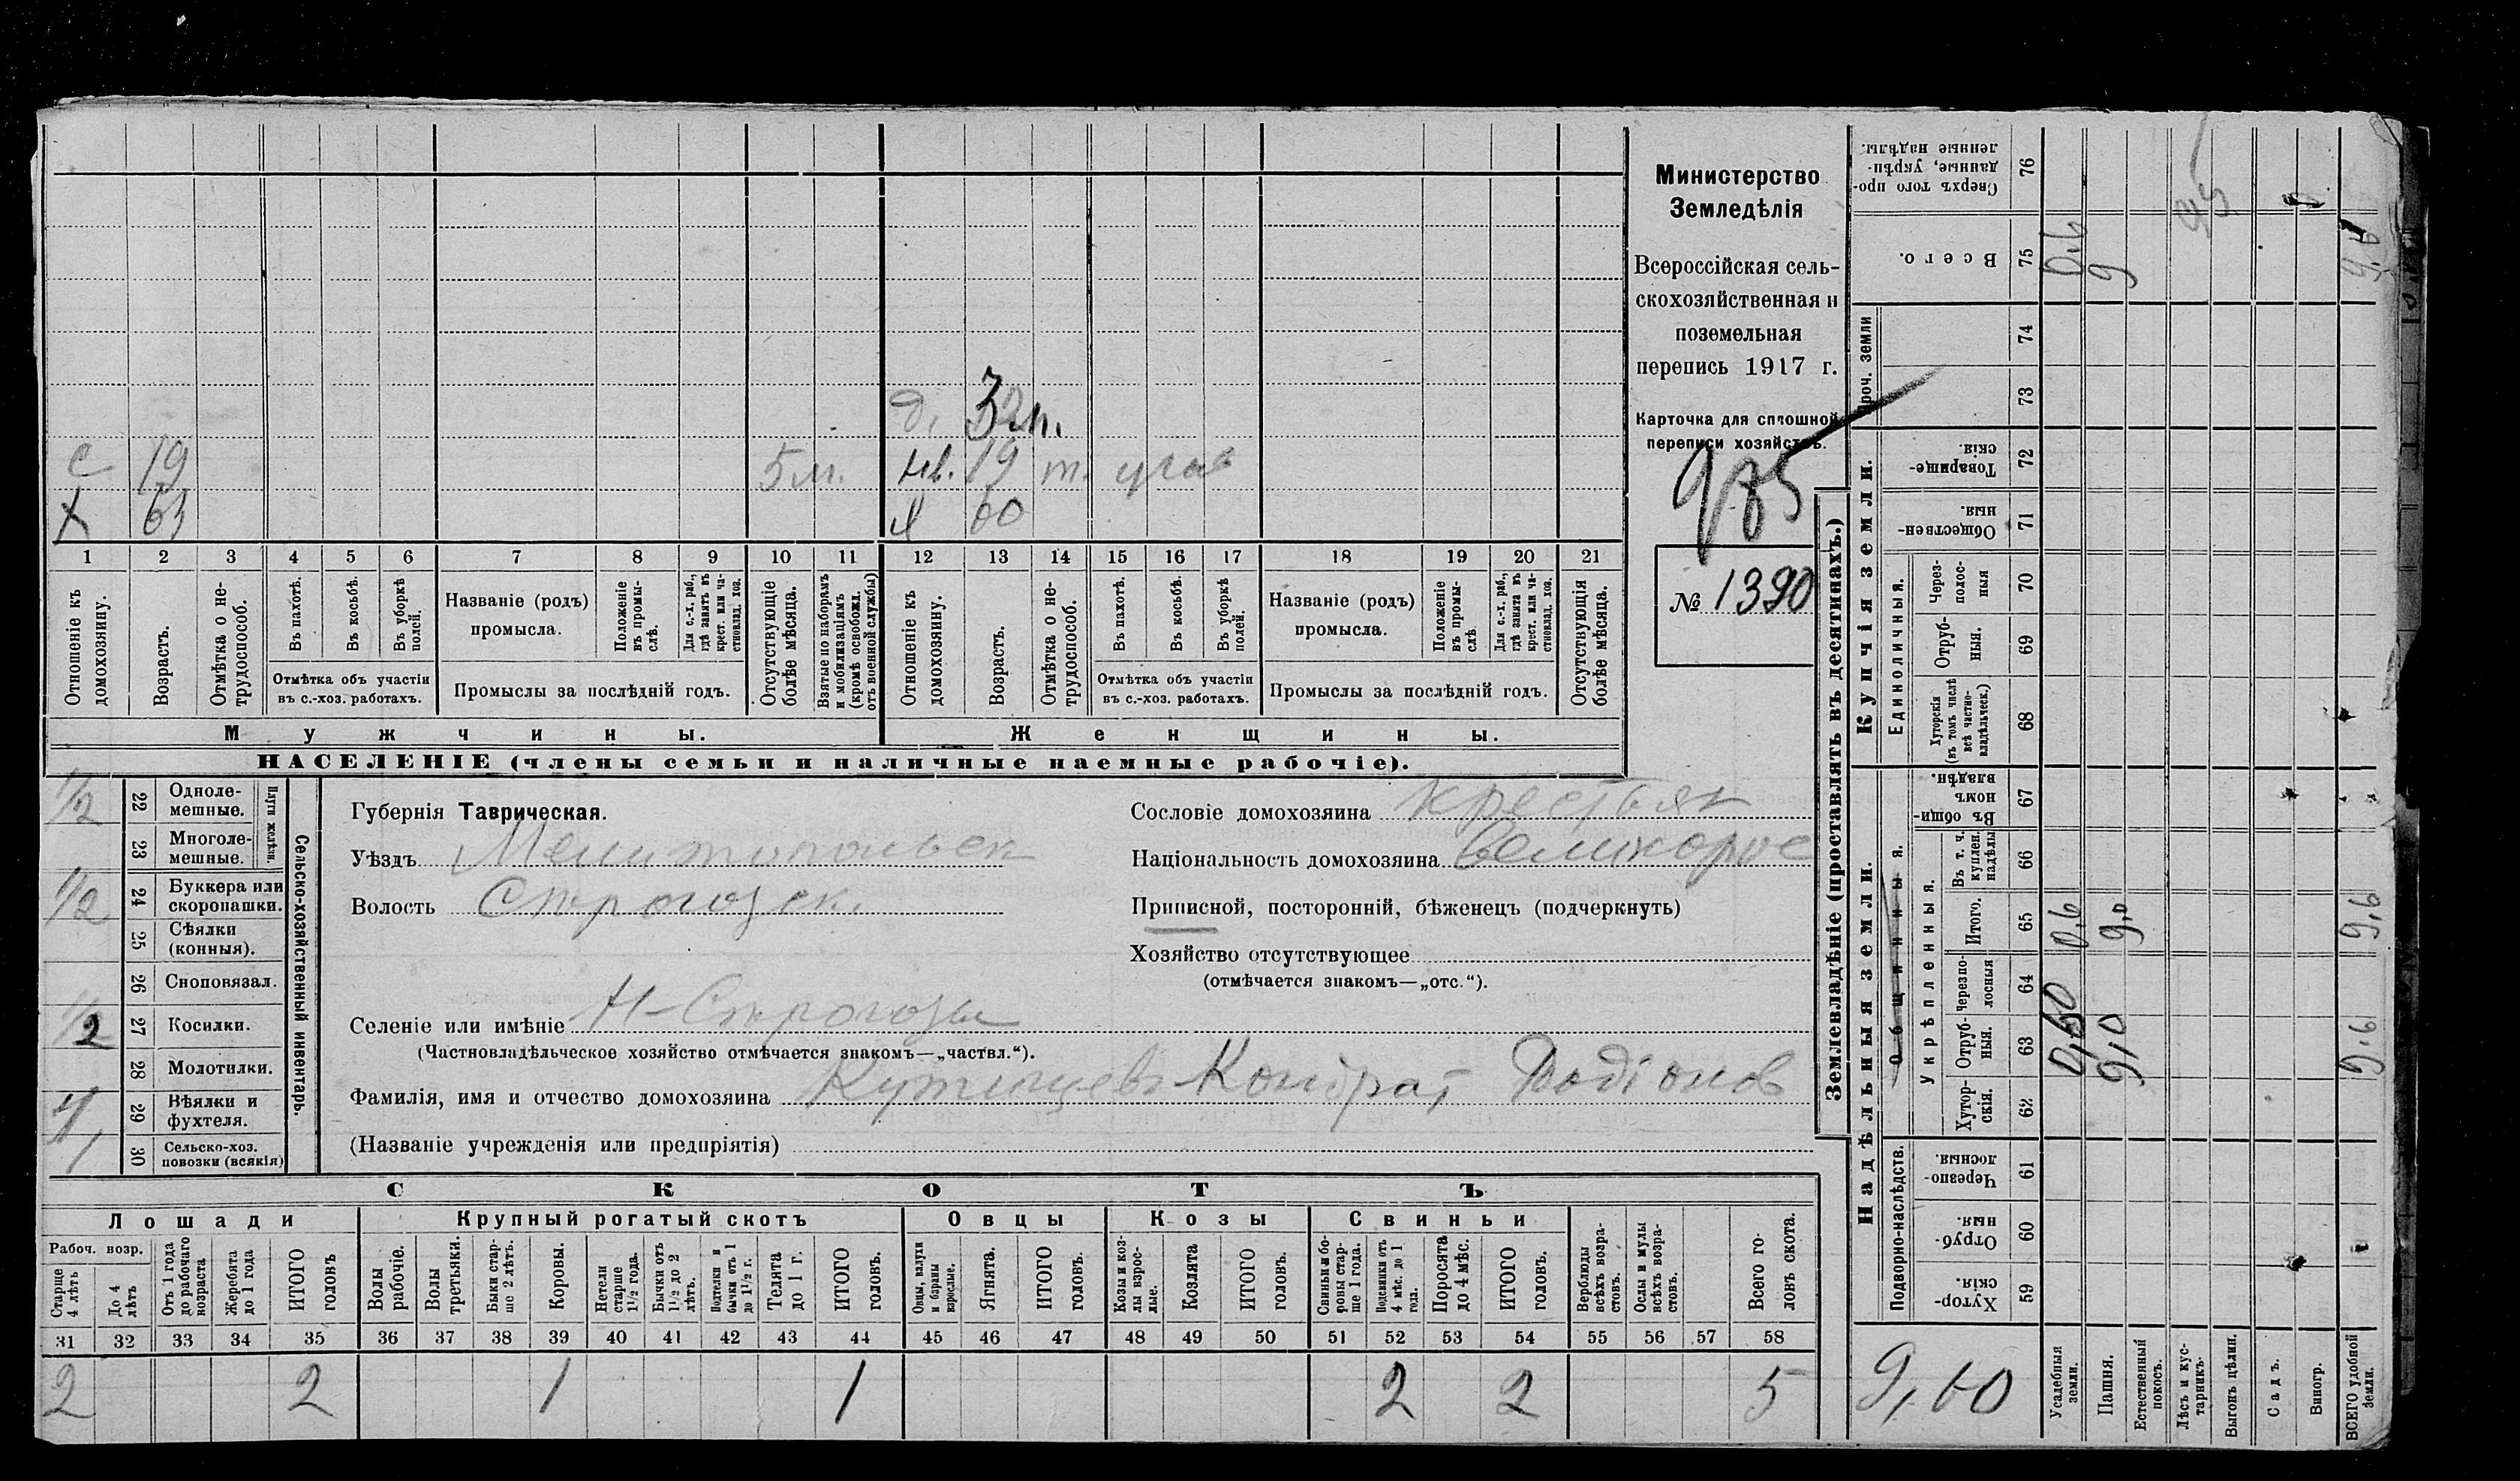 д.
3
2 м.
С 19 5 м.
нв. 19 т.
Х 63
Х 60
1 2 3 4 5 6 7 8 9 10 11 12 13 14 15 16 17 18 19 20 21
Отношеніе къ домохозяину.
Возрастъ.
Отмѣтка о не-трудоспособ.
Въ пахотѣ.
Въ косьбѣ.
Въ уборкѣ полей.
Отмѣтка объ участіи
въ с.-хоз. работахъ.
Названіе (родъ)
промысла.
Положеніе въ промы-слѣ.
Для с.-х. раб., гдѣ занятъ въ крест. или ча-стновлад. хоз.
Промыслы за послѣдній годъ.
Отсутствующіе болѣе мѣсяца.
Взятые по наборамъ и мобилизаціямъ (кромѣ освобожд. отъ военной службы)
Отношеніе къ домохозяину.
Возрастъ.
Отмѣтка о не-трудоспособ.
Въ пахотѣ.
Въ косьбѣ.
Въ уборкѣ полей.
Отмѣтка объ участіи
въ с.-хоз. работахъ.
Названіе (родъ)
промысла.
Положеніе въ промы-слѣ.
Для с.-х. раб., гдѣ занята въ крест. или ча-стновлад. хоз.
Промыслы за послѣдній годъ.
Отсутствующія болѣе мѣсяца.
Мужчины.
Женщины.
НАСЕЛЕНІЕ (члены семьи и наличные наемные рабочіе).
Министерство
Земледѣлія
Всероссійская сель-
скохозяйственная и
поземельная
перепись 1917 г.
Карточка для сплошной
переписи хозяйствъ.
975
№ 1390
1/2 22 Одноле-мешные.
23 Многоле-мешные.
Плуги желѣзн.
1/2 24 Буккера или скоропашки.
25 Сѣялки (конныя).
26 Сноповязал.
1/2 27 Косилки.
28 Молотилки.
29 Вѣялки и фухтеля.
1 30 Сельско-хоз. повозки (всякія)
Сельско-хозяйственный инвентарь.
Губернія Таврическая.
Уѣздъ Мелитопольск
Волость Строгозск.
Сословіе домохозяина крестьян
Національность домохозяина великорос
Приписной, посторонній, бѣженецъ (подчеркнуть)
Хозяйство отсутствующее
(отмѣчается знакомъ—„отс.“).
Селеніе или имѣніе Н-Строгозы
(Частновладѣльческое хозяйство отмѣчается знакомъ—„частвл.“).
Фамилія, имя и отчество домохозяина Кондрат Родіонов
(Названіе учрежденія или предпріятія)
СКОТЪ
Лошади
Крупный рогатый скотъ
Овцы
Козы
Свиньи
Рабоч. возр.
Старше 4 лѣтъ
До 4 лѣтъ
Отъ 1 года до рабочаго возраста
Жеребята до 1 года
ИТОГО головъ
Волы рабочіе.
Волы третьяки.
Быки стар-ше 2 лѣтъ.
Коровы.
Нетели старше 1½ года.
Бычки отъ 1½ до 2 лѣтъ.
Подтелки и бычки отъ 1 до 1½ г.
Телята до 1 г.
ИТОГО головъ.
Овцы, валухи и бараны взрослые.
Ягнята.
ИТОГО головъ.
Козы и коз-лы взрос-лые.
Козлята
ИТОГО головъ.
Свиньи и бо-ровы стар-ше 1 года.
Подсвинки отъ 4 мѣс. до 1 года.
Поросята до 4 мѣс.
ИТОГО головъ.
Верблюды всѣхъ возра-стовъ.
Ослы и мулы всѣхъ возра-стовъ.
Всего го-ловъ скота.
31 32 33 34 35 36 37 38 39 40 41 42 43 44 45 46 47 48 49 50 51 52 53 54 55 56 57 58
2 2 1 1 2 2 5
Землевладѣніе (проставлять въ десятинахъ.)
Надѣльныя земли.
Купчія земли.
Проч. земли
Подворно-наслѣдств.
Общинныя.
Укрѣпленныя.
Единоличныя.
Сверхъ того про-данные, укрѣп-ленные надѣлы. 76
Всего. 75 0,6 9
74
73
Товарище-скія 72
Обществен-ныя. 71
Через-полос-ныя 70
Отруб-ныя. 69
Хуторскія (въ томъ числѣ всѣ частно-владѣльческ.) 68
Въ общин-номъ владѣн. 67
Въ т. ч. куплен. надѣлы 66
Итого. 65 0,6 9,0 9,6
Черезпо-лосныя 64
Отруб-ныя. 63 0,60 9,0 9,6
Хутор-скія. 62
Черезпо-лосныя. 61
Отруб-ныя. 60
Хутор-скія. 59
9,60
Усадебныя земли.
Пашня.
Естественный покосъ.
Лѣсъ и кус-тарникъ.
Выгонъ цѣлин.
Садъ.
Виногр.
ВСЕГО удобной земли.